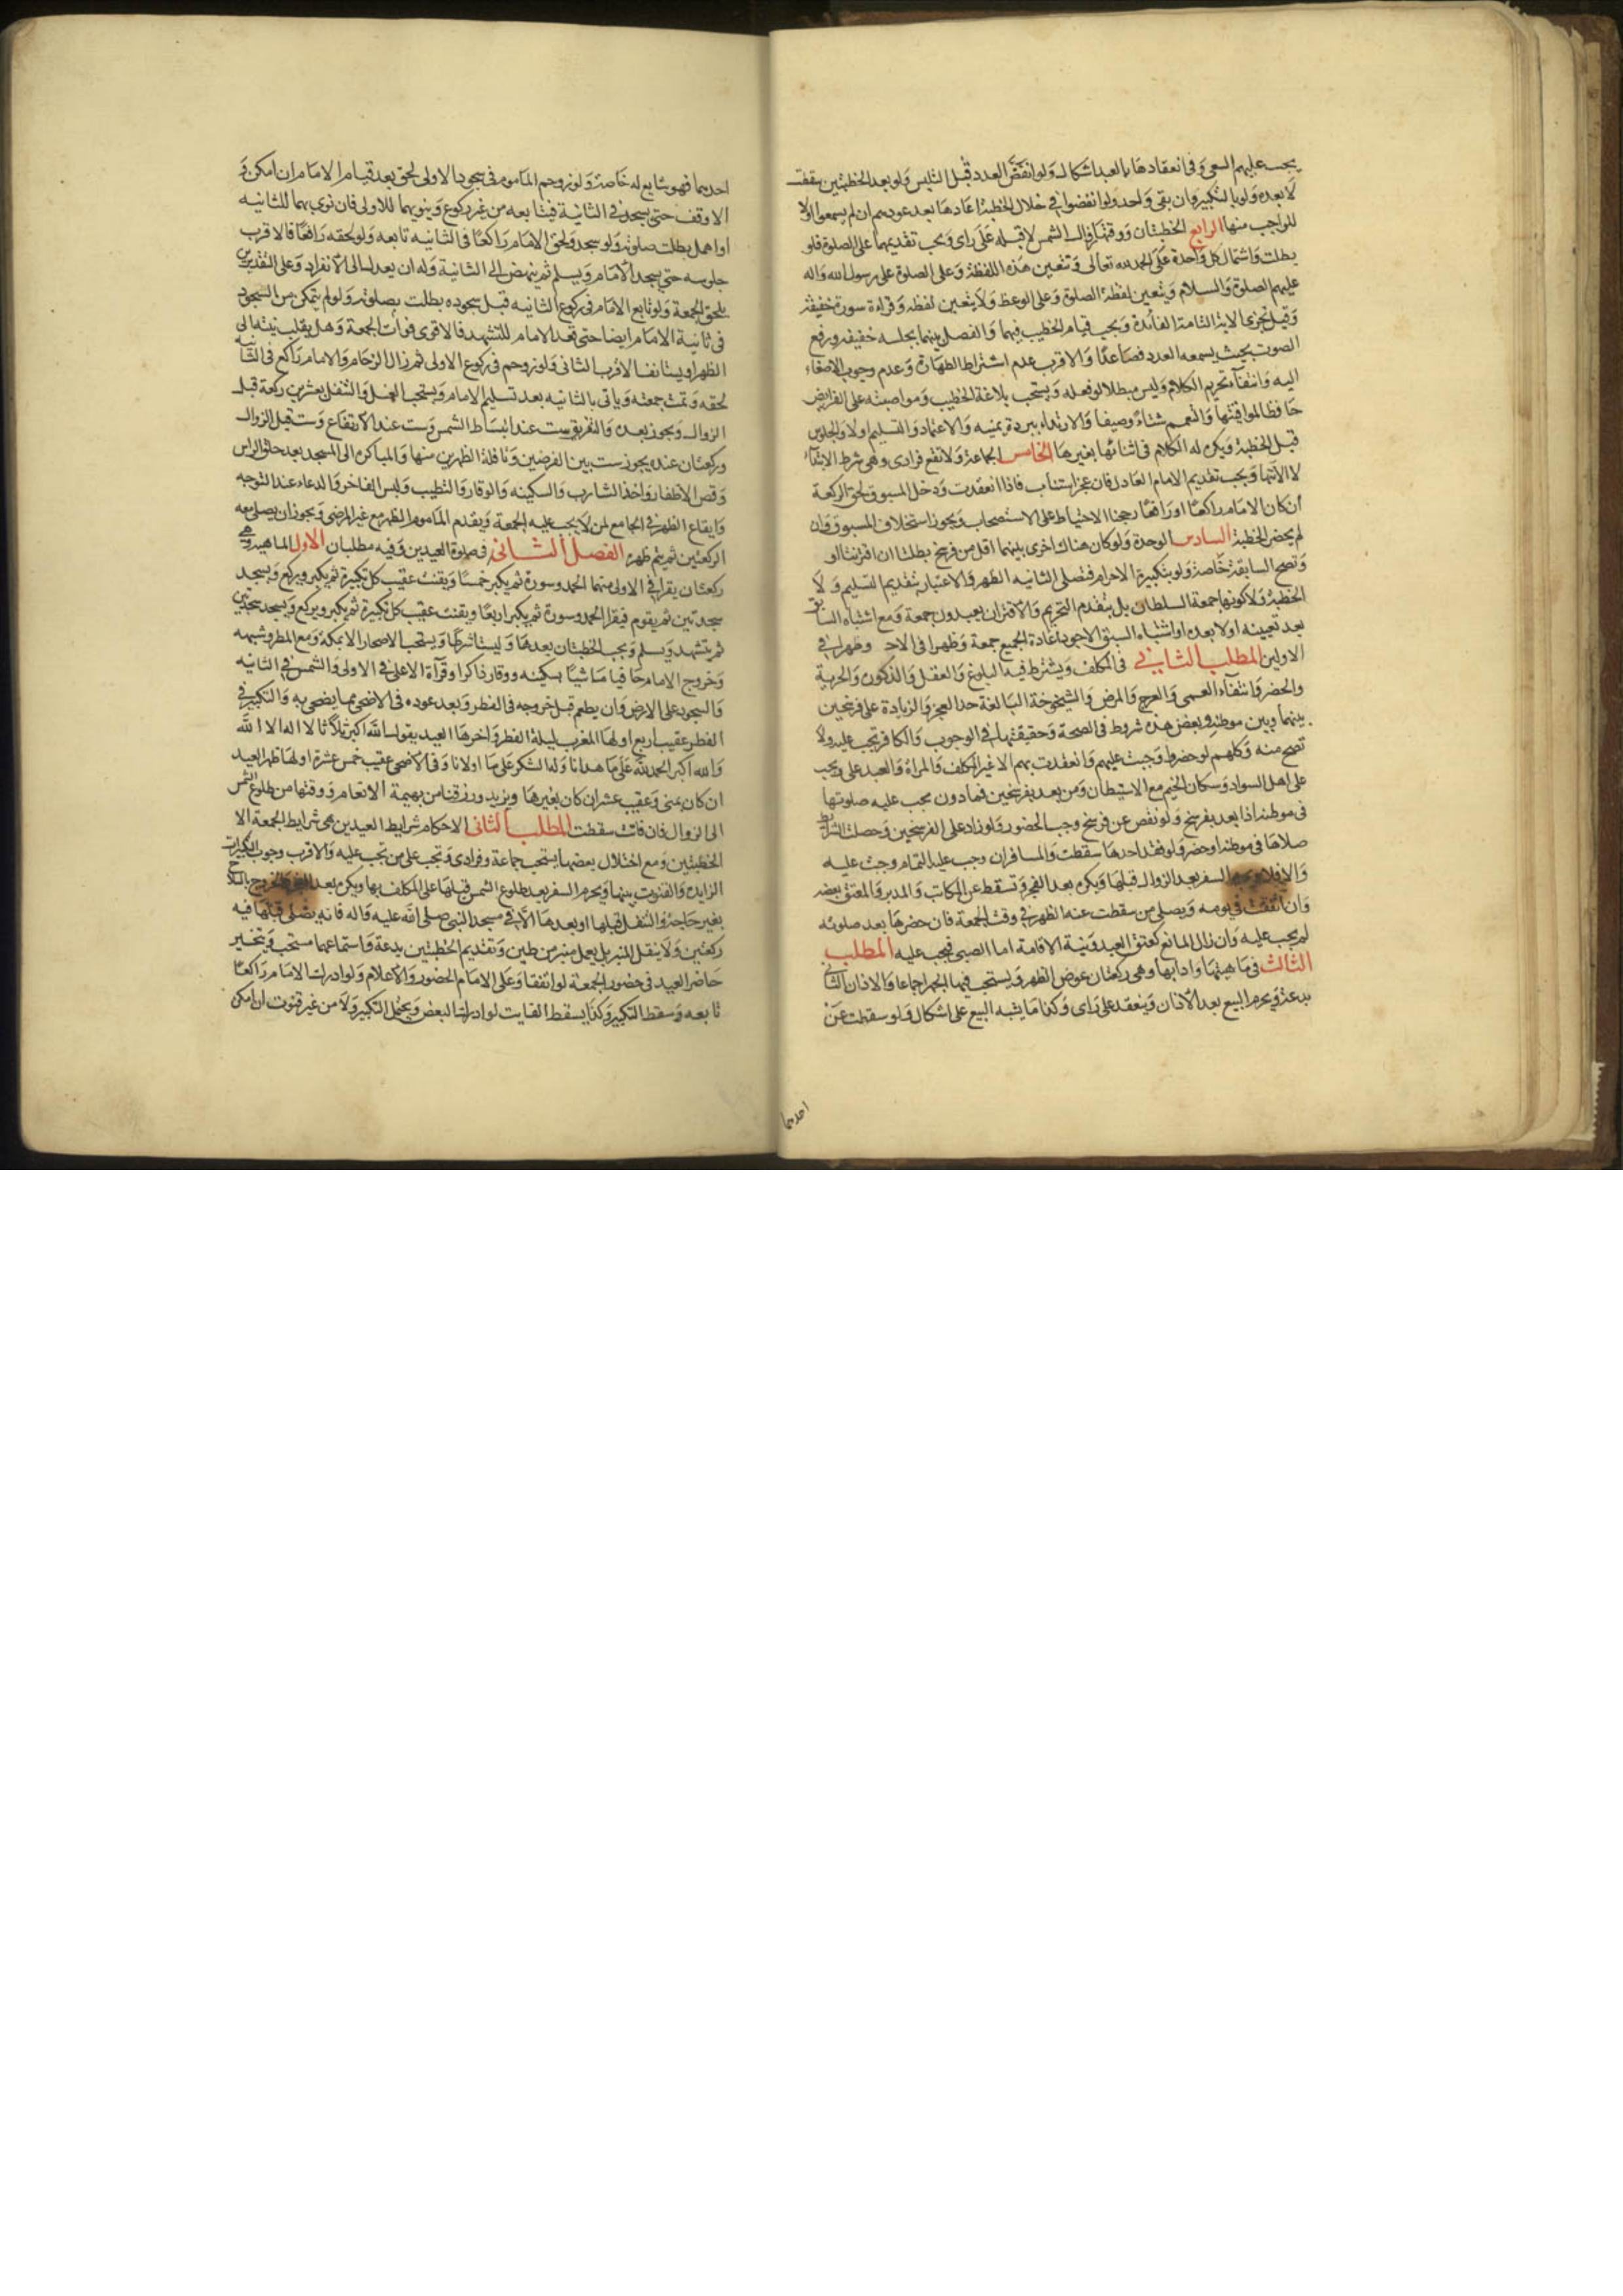 يجب عليهم السعى وفى انعقادها بالعبد اشكال ولو انفض العدد قبل التلبس ولو بعد الخطبتين سقطت
لا بعده ولو بالتكبير وان بقى واحد ولو انفضوا فى خلال الخطبة اعادها بعد عودهم ان لم يسمعوا اولا
الواجب منها الرابع الخطبتان ووقتهما زوال الشمس لا قبله على راى ويجب تقديمهما على الصلوة فلو
بطلت واشتمال كل واحدة على الحمد لله تعالى وتتعين هذه اللفظة وعلى الصلوة على رسول الله واله
عليهم الصلوة والسلام ويتعين لفظة الصلوة وعلى الوعظ ولا يتعين لفظه وقراءة سورة خفيفة
وقيل تجزى الاية التامة الفائدة ويجب قيام الخطيب فيهما والفصل بينهما بجلسه خفيفه ورفع
الصوت بحيث يسمعه العدد فصاعدا والاقرب عدم اشتراط الطهارة وعدم وجوب الاصغاء
اليه وانتفاء تحريم الكلام وليس مبطلا لو فعله ويستحب بلاغة الخطيب ومواصبته على الفرايض
حافظا لمواقيتها والتعمم شتاء وصيفا والارتداء ببردة يمنيه والاعتماد والتسليم اولا والجلوس
قبل الخطبة ويكره له الكلام فى اثنائها بغيرها الخامس الجماعة ولا تقع فرادى وهى شرط الابتداء
لا الانتهاء ويجب تقديم الامام العادل فان عجز استناب فاذا انعقدت ودخل المسبوق لحق الركعة
ان كان الامام راكعا او رافعا رجحنا الاحتياط على الاستصحاب ويجوز استخلاف المسبوق وان
لم يحضر الخطبة السادس الوحدة ولو كان هناك اخرى بينهما اقل من فرسخ بطلتا ان اقترنتا او
وتصح السابقة خاصة ولو بتكبيرة الاحرام فتصلى الثانيه الظهر والاعتبار بتقديم التسليم ولا
الخطبة ولا كونها جمعة السلطان بل بتقدم التحريم والاقتران يعيدون جمعة ومع اشتباه السابق
بعد تعيينه اولا بعده او اشتباه السبق الاجود اعادة الجميع جمعة وظهرا فى الاخر وظهرا فى
الاولين المطلب الثانى فى المكلف ويشترط فيه البلوغ والعقل والذكورة والحرية
والحضر وانتفاء العمى والعرج والمرض والشيخوخة البالغة حد العجز والزيادة على فرسخين
بينهما وبين موطنه وبعض هذه شروط فى الصحة وحقيقتها فى الوجوب والكافر تجب عليه ولا
تصح منه وكلهم لو حضروا وجبت عليهم وانعقدت بهم الا غير المكلف والمراة والعبد على ويجب
على اهل السواد وسكان الخيم مع الاستيطان ومن بعد بفرسخين فما دون يجب عليه صلوتها
فى موطنه اذا بعد بفرسخ ولو نقص عن فرسخ وجب الحضور ولو زاد على الفرسخين وحصلت الشرايط
صلاها فى موطنه او حضر ولو فقد احدها سقطت والمسافر ان وجب عليه التمام وجبت عليه
والا فلا ويحرم السفر بعد الزوال قبلها ويكره بعد الفجر وتسقط عن المكاتب والمدبر والمعتق بعضه
وان اتفقت فى يومه ويصلى من سقطت عنه الظهر فى وقت الجمعة فان حضرها بعد صلوته
لم يجب عليه وان زال المانع كعتق العبد ونية الاقامة اما الصبى فيجب عليه المطلب
الثالث فى ماهيتها وادابها وهى ركعتان عوض الظهر ويستحب فيهما الجهر اجماعا والاذان الثانى
بدعة ويحرم البيع بعد الاذان وينعقد على راى وكذا ما يشبه البيع على اشكال ولو سقطت عن
احديهما
احديهما فهو سايغ له خاصة ولو زوحم الماموم فى سجود الاولى لحق بعد قيام الامام ان امكن و
الا وقف حتى يسجد فى الثانية فيتابعه من غير ركوع وينويهما للاولى فان نوى بهما للثانيه
او اهمل بطلت صلوته ولو سجد ولحق الامام راكعا فى الثانيه تابعه ولو لحقه رافعا فالاقرب
جلوسه حتى يسجد الامام ويسلم ثم ينهض الى الثانية وله ان يعدل الى الانفراد وعلى التقديرين
يلحق الجمعة ولو تابع الامام فى ركوع الثانيه قبل سجوده بطلت صلوته ولو لم يتمكن من السجود
فى ثانية الامام ايضا حتى قعد الامام للتشهد فالاقوى فوات الجمعة وهل يقلب نيته الى
الظهر او يستانف الاقرب الثانى ولو زوحم فى ركوع الاولى ثم زال الزحام والامام راكع فى الثانيه
لحقه وتمت جمعته وياتى بالثانيه بعد تسليم الامام ويستحب الغسل والتنفل بعشرين ركعة قبل
الزوال ويجوز بعده والتفريق ست عند انبساط الشمس وست عند الارتفاع وست قبل الزوال
وركعتان عنده يجوز ست بين الفرضين ونافلة الظهرين منها والمباكرة الى المسجد بعد حلق الراس
وقص الاظفار واخذ الشارب والسكينه والوقار والتطيب ولبس الفاخر والدعاء عند التوجه
وايقاع الظهر فى الجامع لمن لا يجب عليه الجمعة ويقدم الماموم الظهر مع غير المرضى ويجوز ان يصلى معه
الركعتين ثم يتم ظهره الفصل الثانى فى صلوة العيدين وفيه مطلبان الاول الماهيه وهى
ركعتان يقرا فى الاولى منهما الحمد وسورة ثم يكبر خمسا ويقنت عقيب كل تكبيرة ثم يكبر ويركع ويسجد
سجدتين ثم يقوم فيقرا الحمد وسورة ثم يكبر اربعا ويقنت عقيب كل تكبيرة ثم يكبر ويركع ويسجد سجدتين
ثم يتشهد ويسلم ويجب الخطبتان بعدها وليستا شرطا ويستحب الاصحار الا بمكة ومع المطر وشبهه
وخروج الامام حافيا ماشيا بسكينه ووقار ذاكرا وقراءة الاعلى فى الاولى والشمس فى الثانيه
والسجود على الارض وان يطعم قبل خروجه فى الفطر وبعد عوده فى الاضحى مما يضحى به والتكبير فى
الفطر عقيب اربع اولها المغرب ليلة الفطر واخرها العيد يقول الله اكبر ثلاثا لا اله الا الله
والله اكبر الحمد لله على ما هدانا وله الشكر على ما اولانا وفى الاضحى عقيب خمس عشرة اولها ظهر العيد
ان كان بمنى وعقيب عشر ان كان بغيرها ويزيد ورزقنا من بهيمة الانعام ووقتها من طلوع الشمس
الى الزوال فان فاتت سقطت المطلب الثانى الاحكام شرايط العيدين هى شرايط الجمعة الا
الخطبتين ومع اختلال بعضها يستحب جماعة وفرادى وتجب على من تجب عليه والاقرب وجوب التكبيرات
الزايدة والقنوت بينهما ويحرم السفر بعد طلوع الشمس قبلها على المكلف بها ويكره بعد الفجر والخروج بالسلاح
بغير حاجة والتنفل قبلها او بعدها الا فى مسجد النبى صلى الله عليه واله فانه يصلى قبلها فيه
ركعتين ولا ينقل المنبر بل يعمل منبر من طين وتقديم الخطبتين بدعة واستماعهما مستحب ويتخير
حاضر العيد فى حضور الجمعة لو اتفقا وعلى الامام الحضور والاعلام ولو ادرك الامام راكعا
تابعه وسقط التكبير وكذا يسقط الفايت لو ادرك البعض ويحتمل التكبير ولا من غير قنوت ان امكن